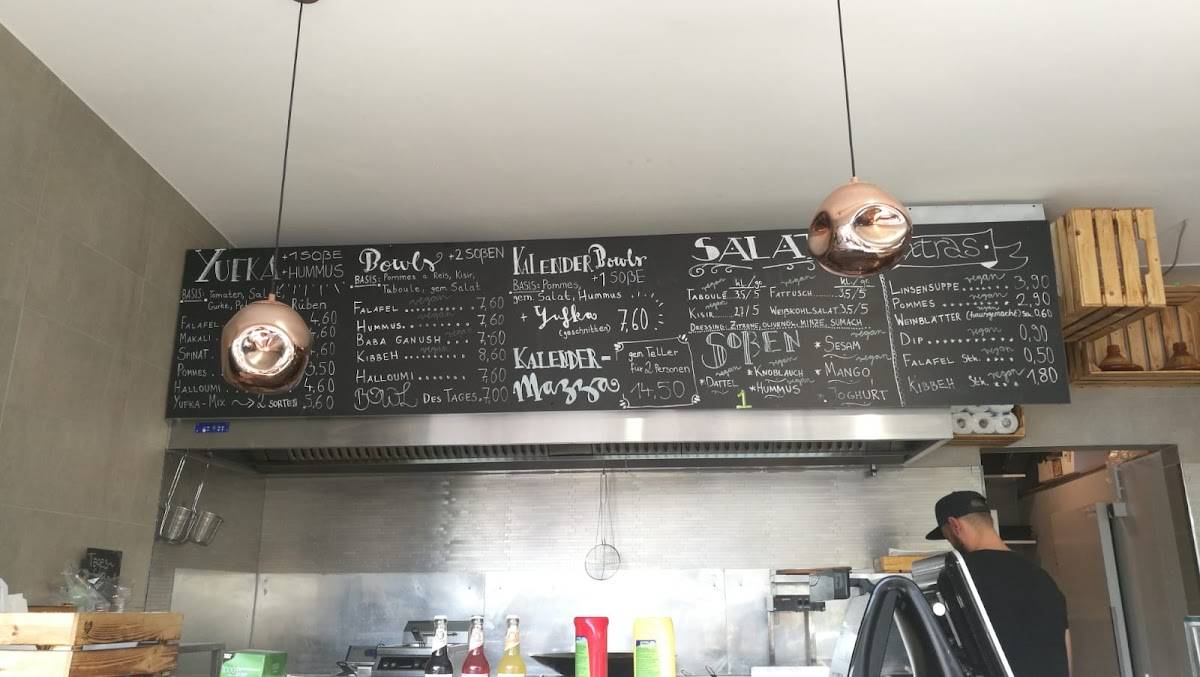 YUFKA +1 SOßE
+HUMMUS
BASIS: Tomaten, Sal
Gurke, Rüben
FALAFEL 4,60
MAKALI
SPINAT
POMMES 3,50
HALLOUMI 4,60
YUFKA-MIX → 2 SORTEN 5,60
Bowls +2 SOßEN
BASIS: Pommes o. Reis, Kisir,
Taboule, gem. Salat
vegan
FALAFEL ......... 7,60
HUMMUS ........ 7,60
vegan
BABA GANUSH .... 7,60
KIBBEH ....... 8,60
HALLOUMI ....... 7,60
BOWL DES TAGES. 7,00
KALENDER Bowls
+1 SOßE
BASIS: Pommes,
gem. Salat, Hummus ....
+ Yufka
(geschnitten) 7,60
KALENDER-
Mazza
gem Teller
für 2 Personen
14,50
SALAT
vegan kl./gr. vegan kl./gr.
TABOULE 3,5/5 FATTUSCH ..... 3,5/5
KISIR 2,7/5 WEIßKOHLSALAT 3,5/5
DRESSING: ZITRONE, OLIVENÖL, MINZE, SUMACH
SOßEN
vegan
*DATTEL
vegan
*KNOBLAUCH
vegan
*HUMMUS
vegan
*SESAM
*MANGO
*JOGHURT
1
xtras
vegan
LINSENSUPPE ....... 3,90
vegan
POMMES ......... 2,90
WEINBLÄTTER (hausgemacht) Stk. 0,60
DIP ............ 0,90
vegan
FALAFEL Stk. ..... 0,50
KIBBEH Stk. .... 1,80